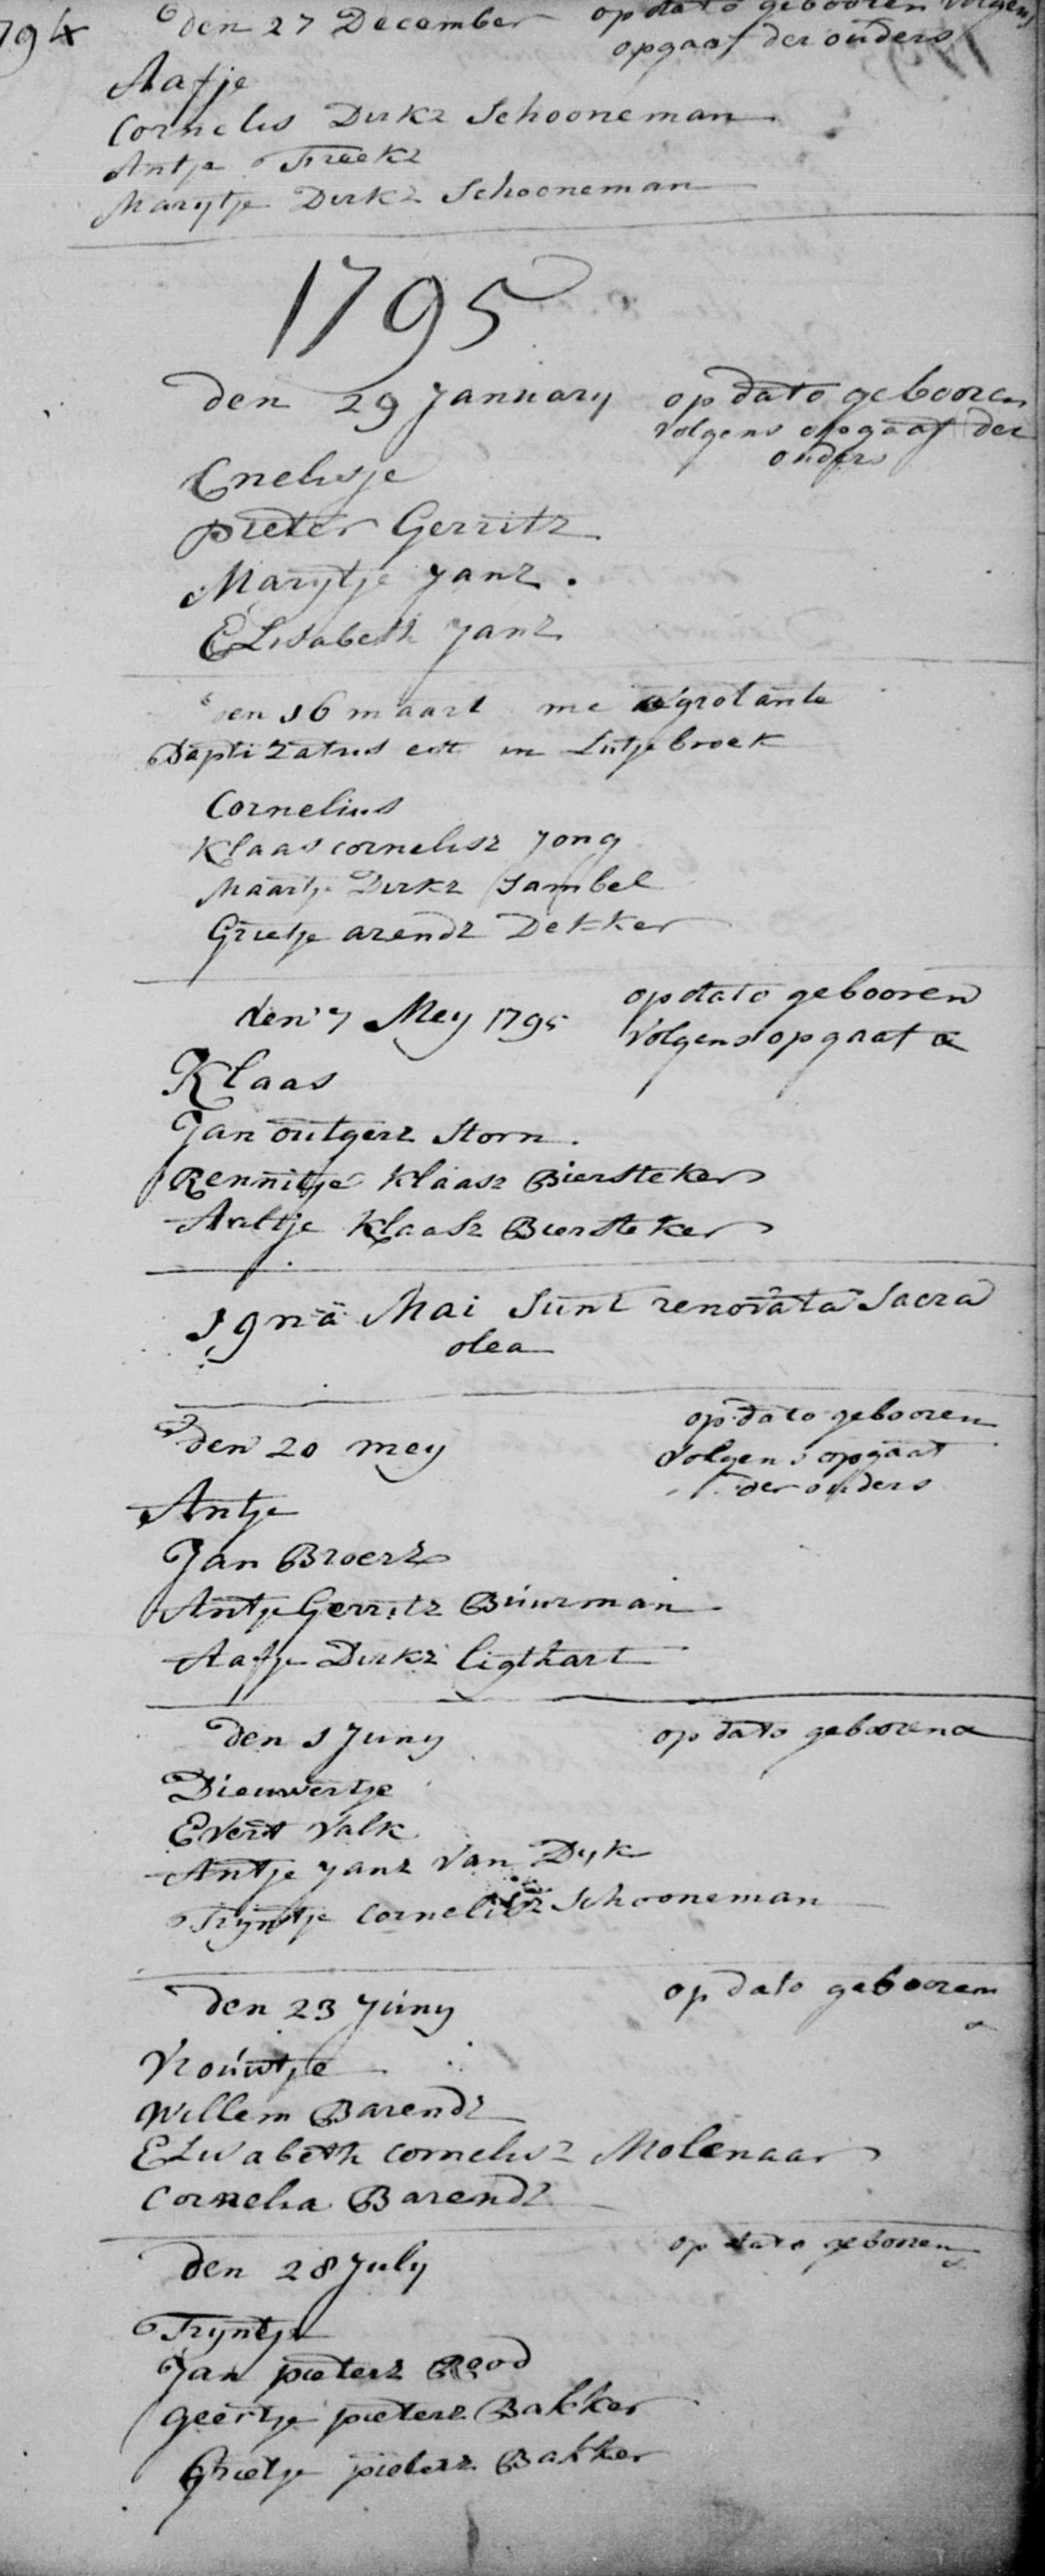 794
den 27 December op dato gebooren volgens
opgaaf der ouders
Aafje
Cornelis Dirkz Schooneman
Antje Freekz
Marytje Dirkz Schooneman
1795
den 29 January op dato gebooren
volgens opgaaf der
ouders
Cnelisje
pieter Gerritz
Marytje Janz.
Elisabeth Janz
den 16 maart me aegrotante
Baptizatus est in Lutjebroek
Cornelius
Klaas cornelisz Jong
Maartje Dirkz Sambel
Grietje arendz Dekker
den 7 Mey 1795 op dato gebooren
volgens opgaaf &
Klaas
Jan outgerz Storn.
Rennitje Klaasz Biersteker
Aaltje Klaasz Biersteker
19na Mai Sunt renovata Sacra
olea
den 20 mey op dato gebooren
volgens opgaaf
der ouders
Antje
Jan Broerz
Antje Gerritz Buurman
Aafje Dirkz ligthart
den 1 Juny op dato gebooren &
Dieuwertje
Evert Valk
Antje Janz Van Dyk
Tryntje cornelisz Schooneman
den 23 Juny op dato gebooren
&
Vrouwtje
Willem Barendz
Elisabeth cornelisz Molenaar
Cornelia Barendz
den 28 July op dato gebooren &
Tryntje
Jan pieterz Rood
geertje pieterz Bakker
Grietje pieterz Bakker